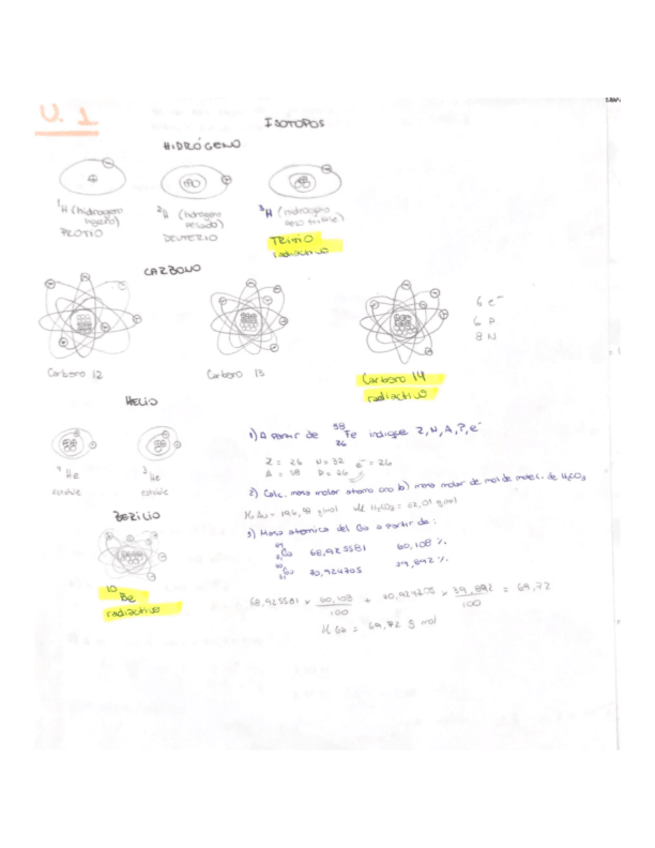 U. 1
ISOTOPOS
HIDRÓGENO
¹H (hidrogeno ligero)
PROTIO
²H (hidrogeno pesado)
DEUTERIO
³H (hidrogeno
TRITIO
radiactivo
CARBONO
6 e⁻
6 P
8 N
Carbono 12
Carbono 13
Carbono 14
radiactivo
HELIO
⁴He
estable
³He
estable
BERILIO
10
Be
radiactivo
1) A partir de ⁵⁸₂₆Fe indique Z, N, A, P, e⁻
Z = 26 N = 32 e⁻ = 26
A = 58 P = 26
2) Calc. masa molar atomo oro b) masa molar de mol de molec. de H₂CO₃
M Au = 196,98 g/mol M H₂CO₃ = 62,01 g/mol
3) Masa atomica del Ga a partir de:
Ga 68,925581 60,108 %
Ga 70,924705 39,892 %
68,925581 × 60,108/100 + 70,924705 × 39,892/100 = 69,72
M Ga = 69,72 g mol